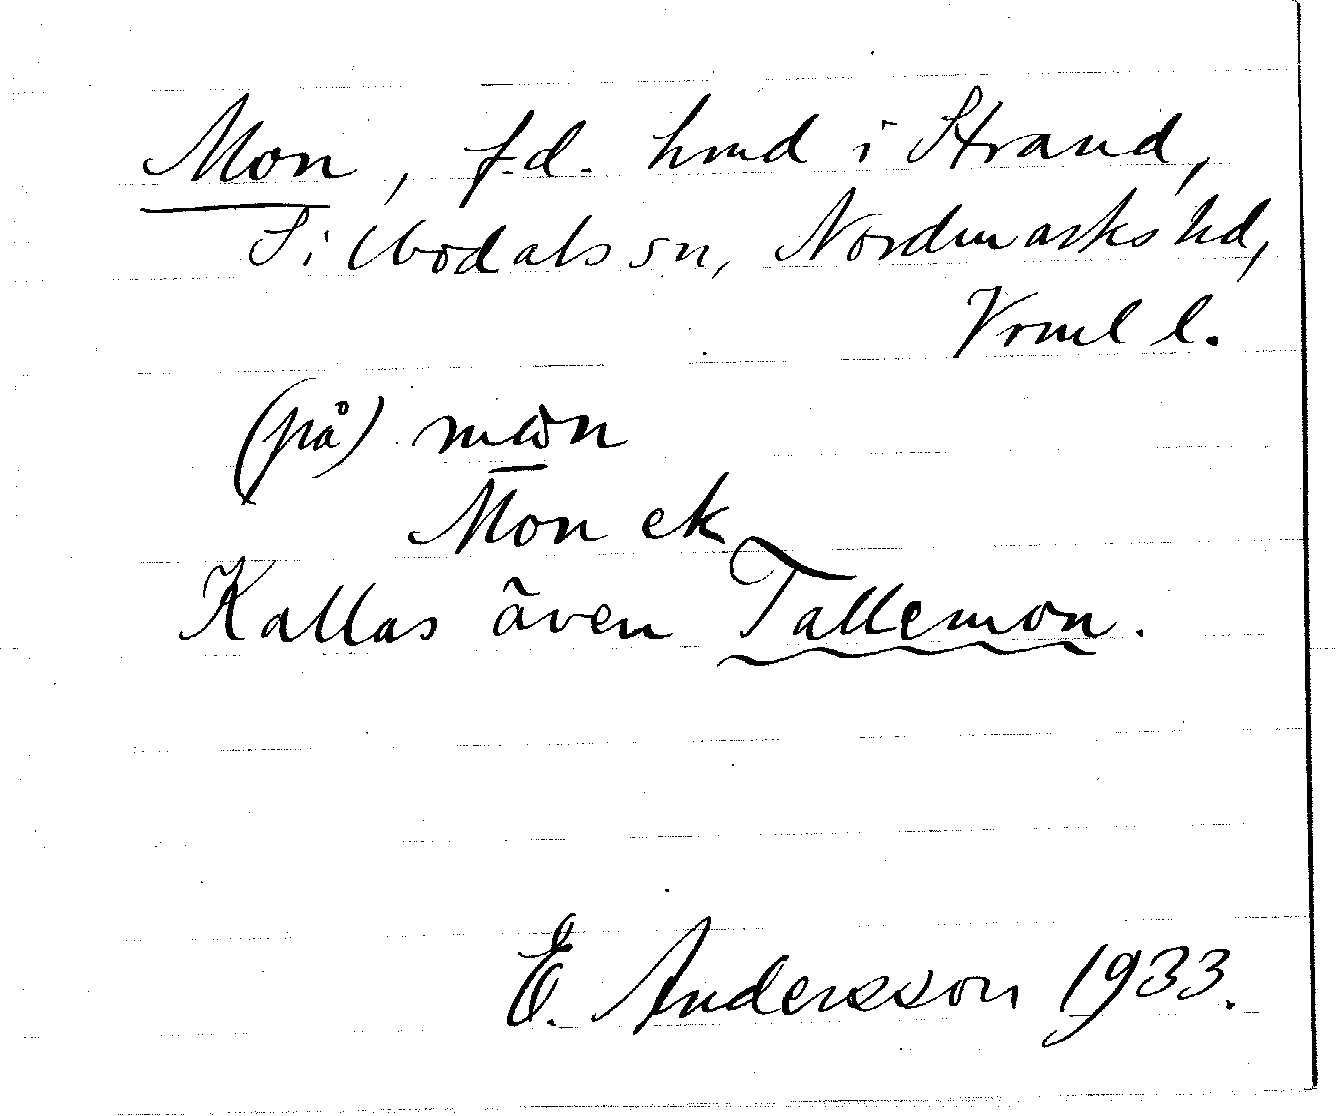 Mon, f.d. hmd i Strand,
Silbodals sn, Nordmarks hd,
Vrml l.
(på) mωn
Mon ek
Kallas även Tallemon.
E. Andersson 1933.